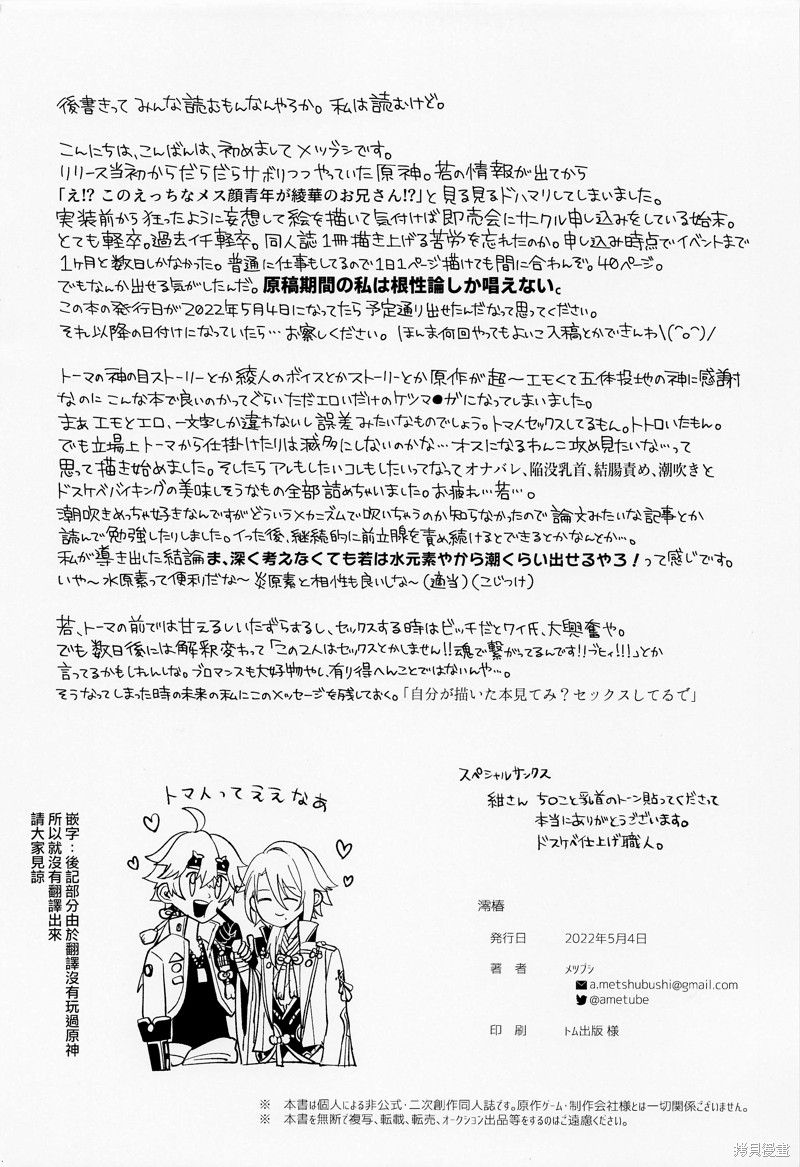 後書きって みんな読むもんなんやろか。私は読むけど。
こんにちは、こんばんは、初めましてメツブシです。
リリース当初からだらだらサボりつつやっていた原神。若の情報が出てから
「え!? このえっちなメス顔青年が綾華のお兄さん!?」と見る見るドハマリしてしまいました。
実装前から狂ったように妄想して絵を描いて気付けば即売会にサークル申し込みをしている始末。
とても軽卒。過去イチ軽卒。同人誌1冊描き上げる苦労を忘れたのか。申し込み時点でイベントまで
1ヶ月と数日しかなかった。普通に仕事もしてるので1日1ページ描けても間に合わんぞ。40ページ。
でもなんか出せる気がしたんだ。原稿期間の私は根性論しか唱えない。
この本の発行日が2022年5月4日になってたら予定通り出せたんだなって思ってください。
それ以降の日付けになっていたら…お察しください。ほんま何回やってもよいこ入稿とかできんわ\(^o^)/
トーマの神の目ストーリーとか綾人のボイスとかストーリーとか原作が超〜エモくて五体投地の神に感謝
なのにこんな本で良いのかってぐらいただエロいだけのケツマ●ガになってしまいました。
まぁエモとエロ、一文字しか違わないし誤差みたいなものでしょう。トマ人セックスしてるもん。トトロいたもん。
でも立場上トーマから仕掛けたりは滅多にしないのかな…オスになるわんこ攻め見たいな…って
思って描き始めました。そしたらアレもしたいコレもしたいってなってオナバレ、陥没乳首、結腸責め、潮吹きと
ドスケベバイキングの美味しそうなもの全部詰めちゃいました。お疲れ…若…。
潮吹きめっちゃ好きなんですがどういうメカニズムで吹いちゃうのか知らなかったので論文みたいな記事とか
読んで勉強したりしました。イった後、継続的に前立腺を責め続けるとできるとかなんとか…。
私が導き出した結論ま、深く考えなくても若は水元素やから潮くらい出せるやろ！って感じです。
いや〜水原素って便利だな〜炎原素と相性も良いしな〜(適当)(こじつけ)
若、トーマの前では甘えるしいたずらするし、セックスする時はビッチだとワイ氏、大興奮や。
でも数日後には解釈変わって「この2人はセックスとかしません!!魂で繋がってるんです!!ブヒィ!!!」とか
言ってるかもしれんしな。ブロマンスも大好物やし、有り得へんことではないんや…。
そうなってしまった時の未来の私にこのメッセージを残しておく。「自分が描いた本見てみ？セックスしてるで」
スペシャルサンクス
紺さん ちのこと乳首のトーン貼ってくださって
本当にありがとうございます。
ドスケベ仕上げ職人。
トマ人ってええなぁ
嵌字：後記部分由於翻譯沒有玩過原神
所以就沒有翻譯出來
請大家見諒
澪椿
発行日 2022年5月4日
著 者 メツブシ
a.metshubushi@gmail.com
@ametube
印 刷 トム出版 様
※ 本書は個人による非公式・二次創作同人誌です。原作ゲーム・制作会社様とは一切関係ございません。
※ 本書を無断で複写、転載、転売、オークション出品等をするのはご遠慮ください。
拷貝漫畫